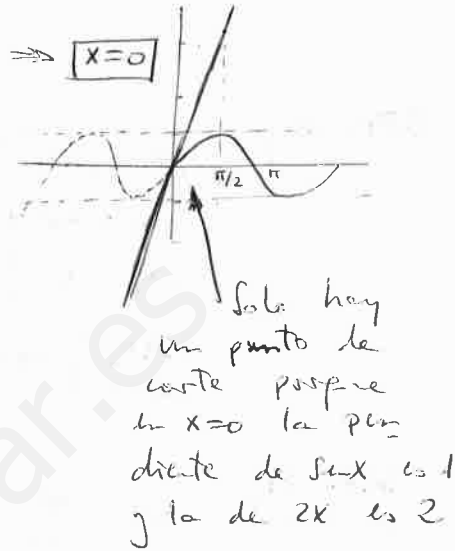 ⇒ x=0
π/2 π
Solo hay
un punto de
corte porque
en x=0 la pen
diente de senx es 1
y la de 2x es 2
ar.es